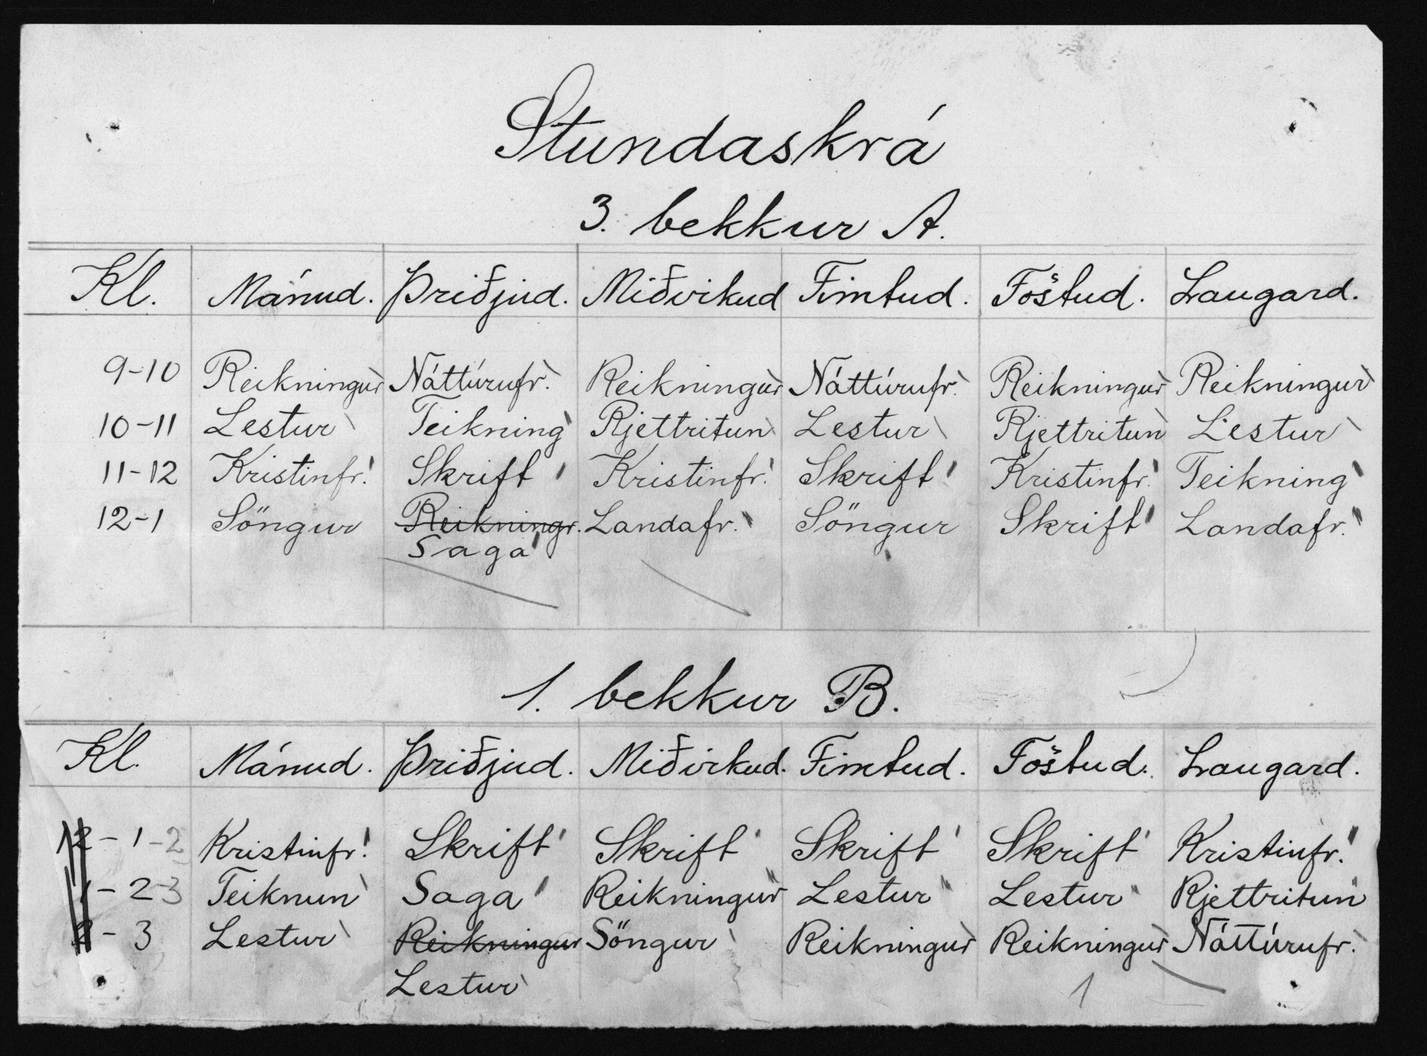 Stundaskrá
3. bekkur A.
Kl. Mánud. Þriðjud. Miðvikud Fimtud. Föstud. Laugard.
9-10 Reikningur Náttúrufr. Reikningur Náttúrufr. Reikningur Reikningur
10-11 Lestur Teikning Rjettritun Lestur Rjettritun Lestur
11-12 Kristinfr. Skrift Kristinfr. Skrift Kristinfr. Teikning
12-1 Söngur Reikningr. Landafr. Söngur Skrift Landafr.
Saga
1. bekkur B.
Kl. Mánud. Þriðjud. Miðvikud. Fimtud. Föstud. Laugard.
12-1-2 Kristinfr. Skrift Skrift Skrift Skrift Kristinfr.
1-2-3 Teiknun Saga Reikningur Lestur Lestur Rjettritun
2-3 Lestur Reikningur Söngur Reikningur Reikningur Náttúrufr.
Lestur 1